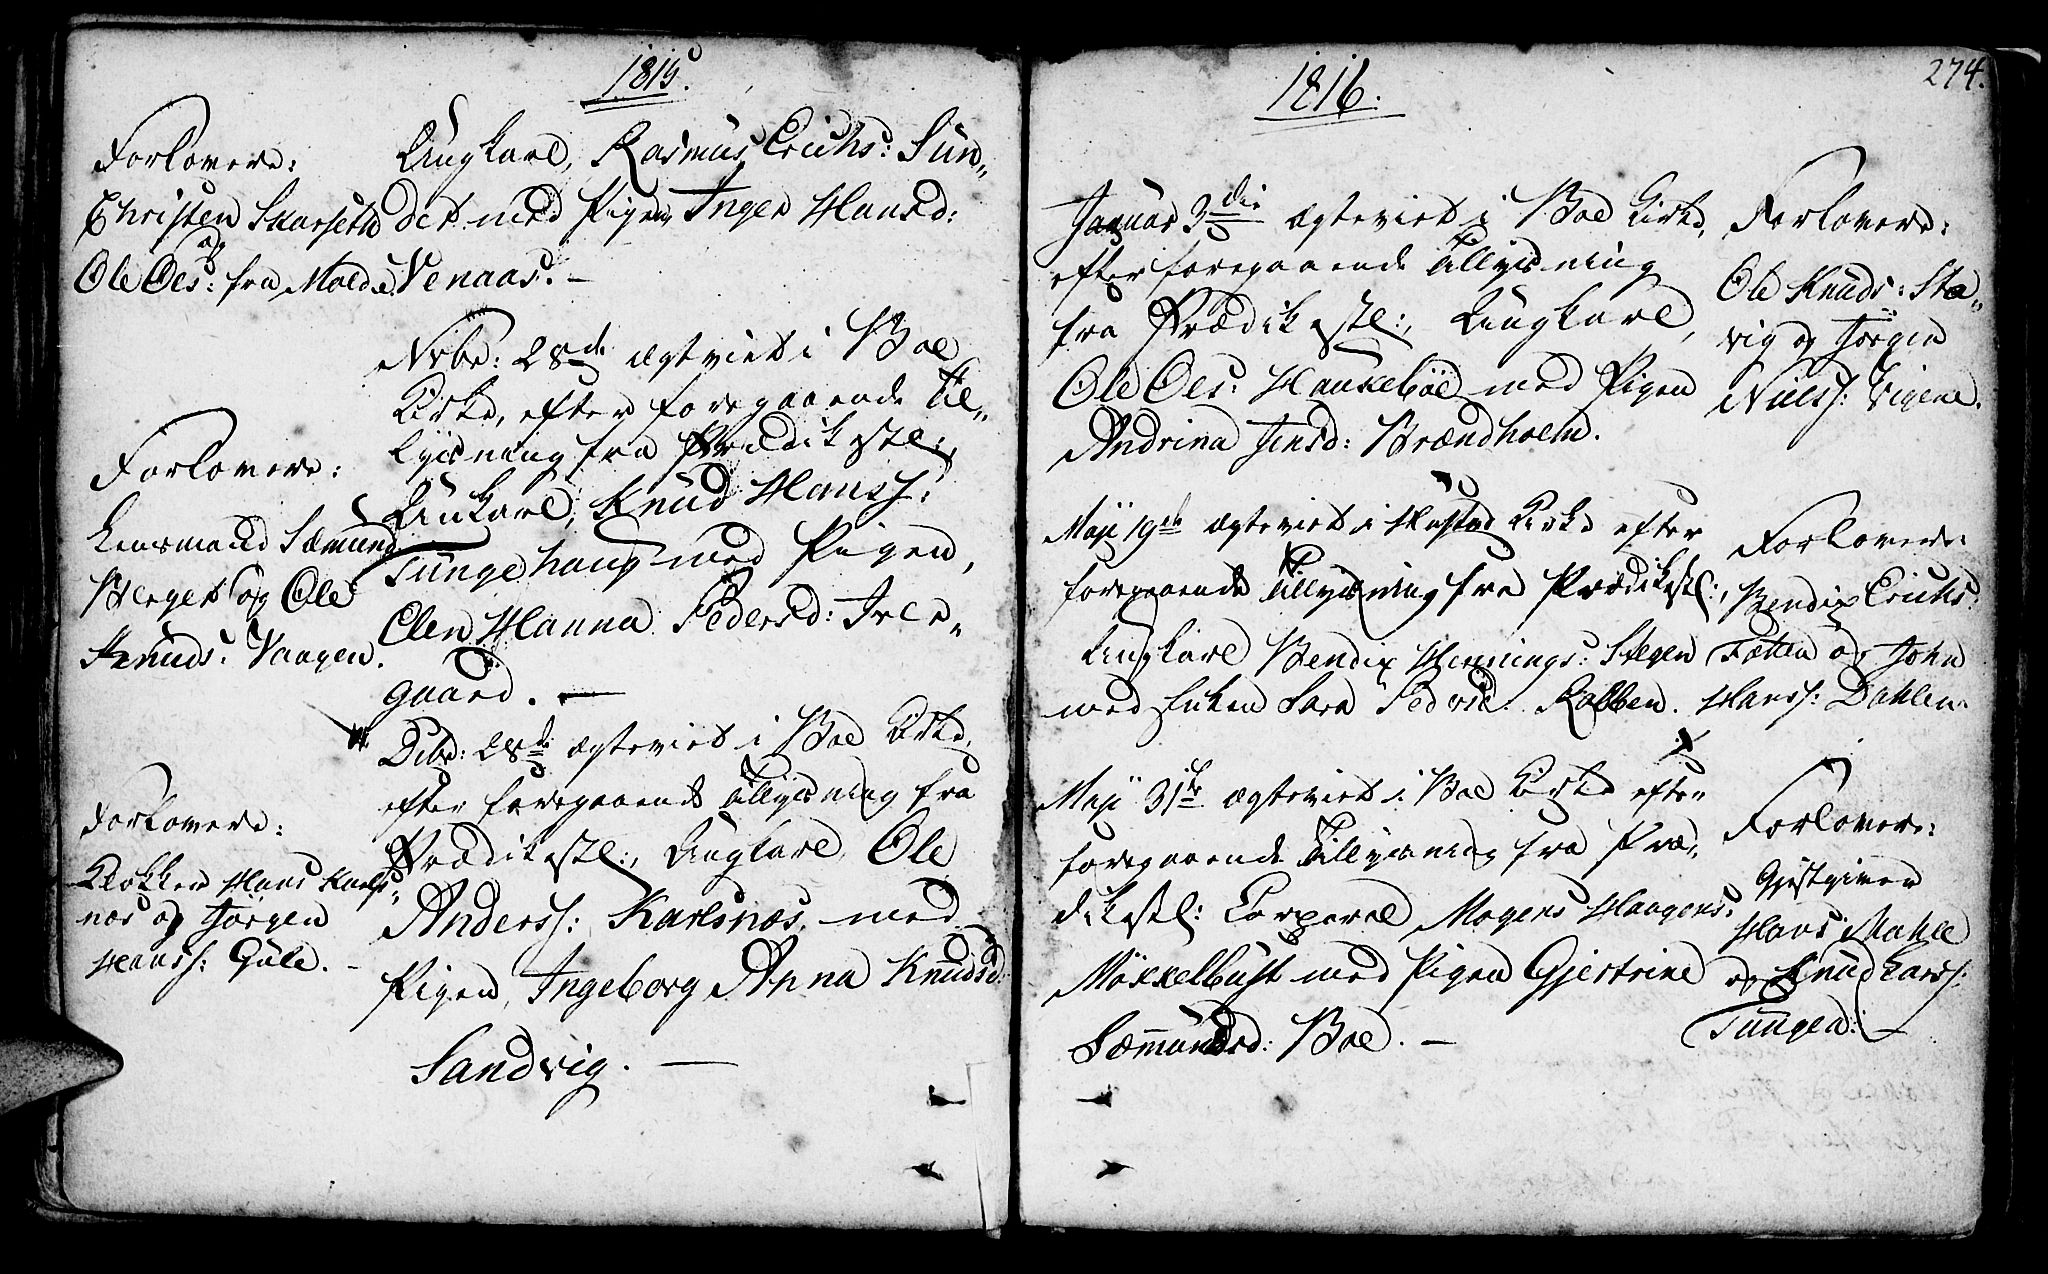 1815.
Forlovere:
Christen Skarseth
og
Ole Ols: fra Molde
Ungkarl, Rasmus Erichs: Sun„
det med Pigen Inger Hansd:
Venaas. —
Forlovere:
Lensmand Sæmund
Berget og Ole
Knuds: Vaagen.
Nvbr: 28de ægtviet i Boe
Kirke, efter foregaaende Til„
lysning fra Prædikestl:,
Unkarl, Knud Hanss:
Tungehaug med Pigen,
Elen Hanna Pedersd: Iele„
gaard. —
Forlovere:
Klokker Hans Karls„
næs og Jørgen
Hanss: Gule. –
Dcbr: 28de ægteviet i Boe Kirke,
efter foregaaende Tillysning fra
Prædikestl:, Ungkarl, Ole
Anderss: Karlsnæs, med
Pigen, Ingeborg Anna Knudsd:
Sandvig. —
274.
1816.
Januar 3die ægteviet i Boe Kirke,
efter foregaaende Tillysning
fra Prædikestl:, Ungkarl,
Ole Ols: Hauxebøe med Pigen
Andrina Jensd: Brændholm.
Forlovere:
Ole Knuds: Sta„
vig og Jørgen
Nielss: Vigene.
Maji 19de ægteviet i Hustad Kirke efter
foregaaende Tillysning fra Prædikestl:,
Ungkarl Bendix Hennings: Stegen
med Enken Sara Pedersd: Rabben.
Forlovere:
Bendix Erichs:
Tætten og John
Hanss: Dahlen.
Maji 31te ægteviet i Boe Kirke efter
foregaaende Tillysning fra Præ„
dikestl: Corporal Mogens Haagens:
Mökkelbust med Pigen Gjertrine
Sæmundsd: Boe. —
Forlovere:
Gjestgiver
Hans Mahle
og Knud Larss:
Tungen. —